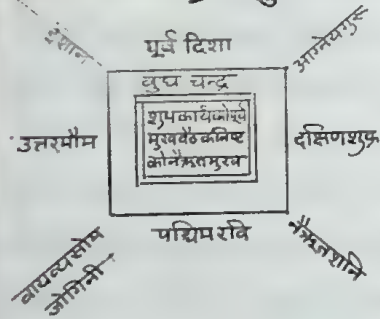 ईशान
पूर्व दिशा
आग्नेयगुरू
बुध चन्द्र
शुभकार्यकोपूर्व
मुखबैठकनिष्ट
कोनैऋतमुरव
उत्तरभौम
दक्षिणशुक्र
पश्चिमरवि
वायव्यसोम
जोगिनी
नैऋतशनि